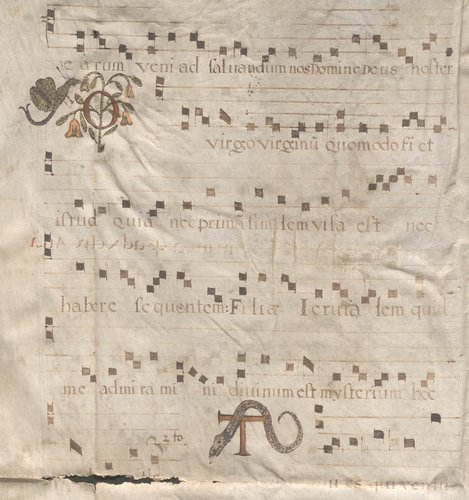 e arum veni ad saluandum nos Domine Deus noster
O virgo virginũ quomodo fi et
istud quia nec primã similem visa est nec
habere sequentem: Filiæ Ierusa lem quid
me admi ra mi ni diuinum est mysterium hoc
T 2.º